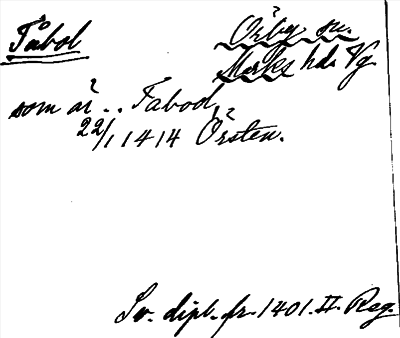 Tåbol
Örby sn.
Marks hd. Vg.
som är .. Tabod,
22/1 1414 Örsten.
Sv. dipl. fr. 1401. II. Reg.